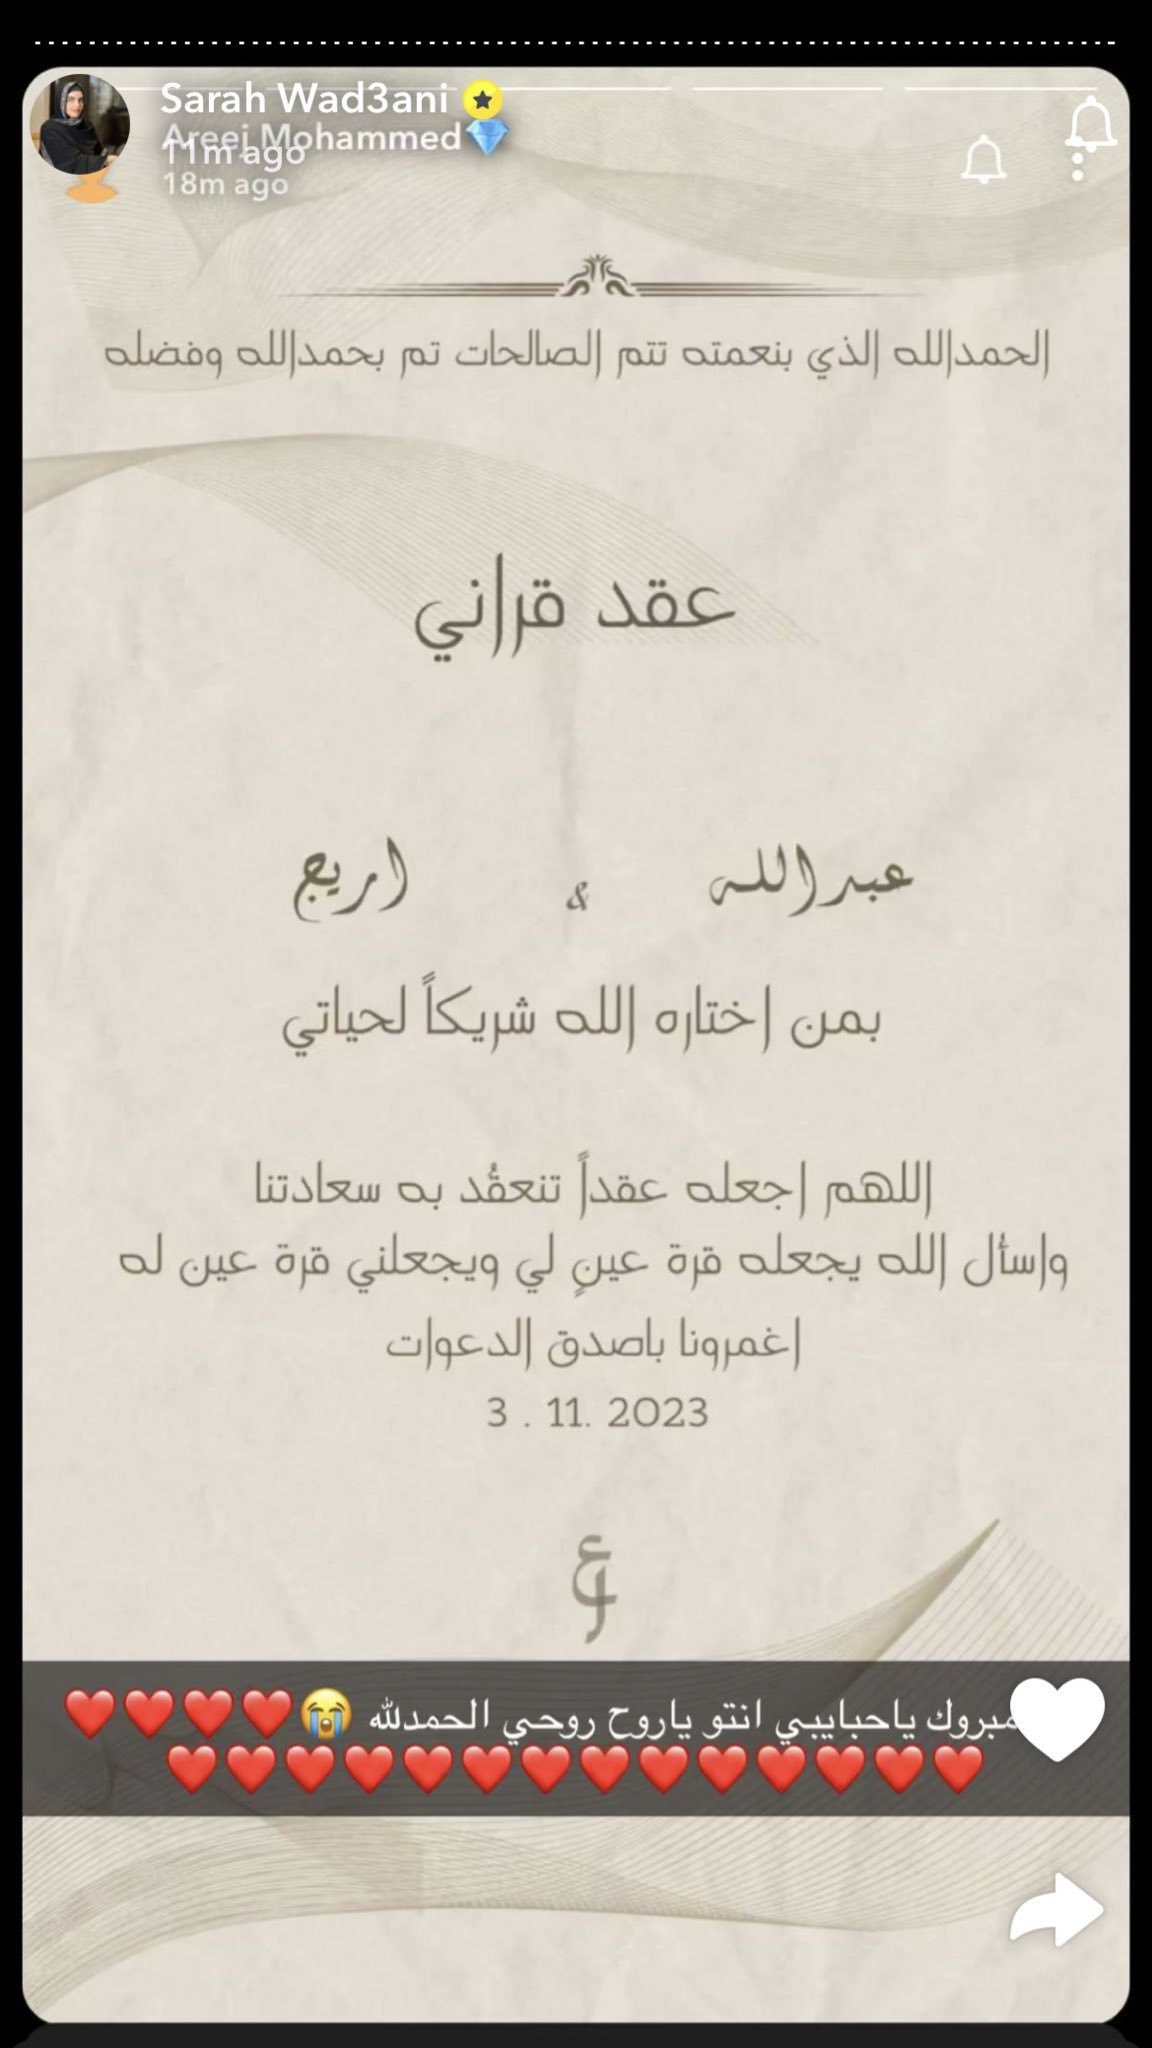 Sarah Wad3ani
Areej Mohammed💎
11m ago
18m ago
الحمدالله الذي بنعمته تتم الصالحات تم بحمدالله وفضله
عقد قراني
عبدالله & اريج
بمن اختاره الله شريكاً لحياتي
اللهم اجعله عقداً تنعقُد به سعادتنا
واسأل الله يجعله قرة عينٍ لي ويجعلني قرة عين له
اغمرونا باصدق الدعوات
3 . 11. 2023
مبروك ياحبايبي انتو ياروح روحي الحمدلله 😭❤️❤️❤️❤️
❤️❤️❤️❤️❤️❤️❤️❤️❤️❤️❤️❤️❤️❤️